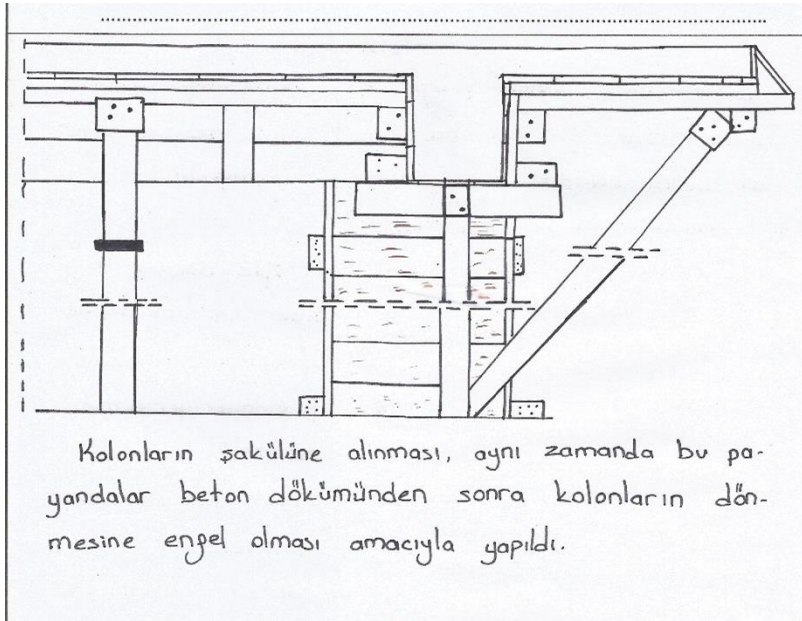 Kolonların şakülüne alınması, aynı zamanda bu pa-
yandalar beton dökümünden sonra kolonların dön-
mesine engel olması amacıyla yapıldı.